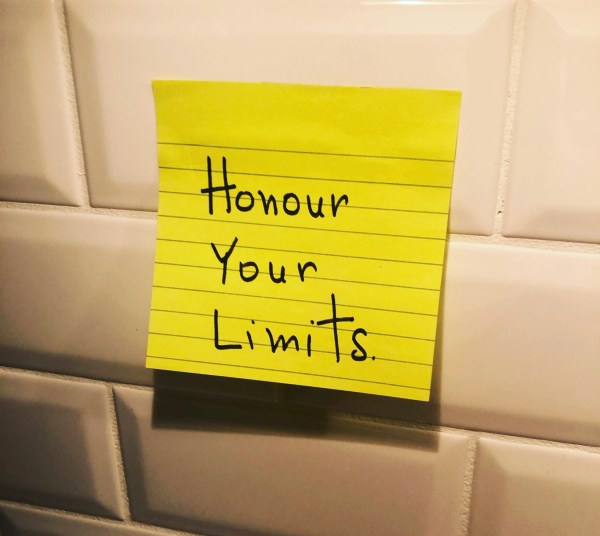 Honour
Your
Limits.